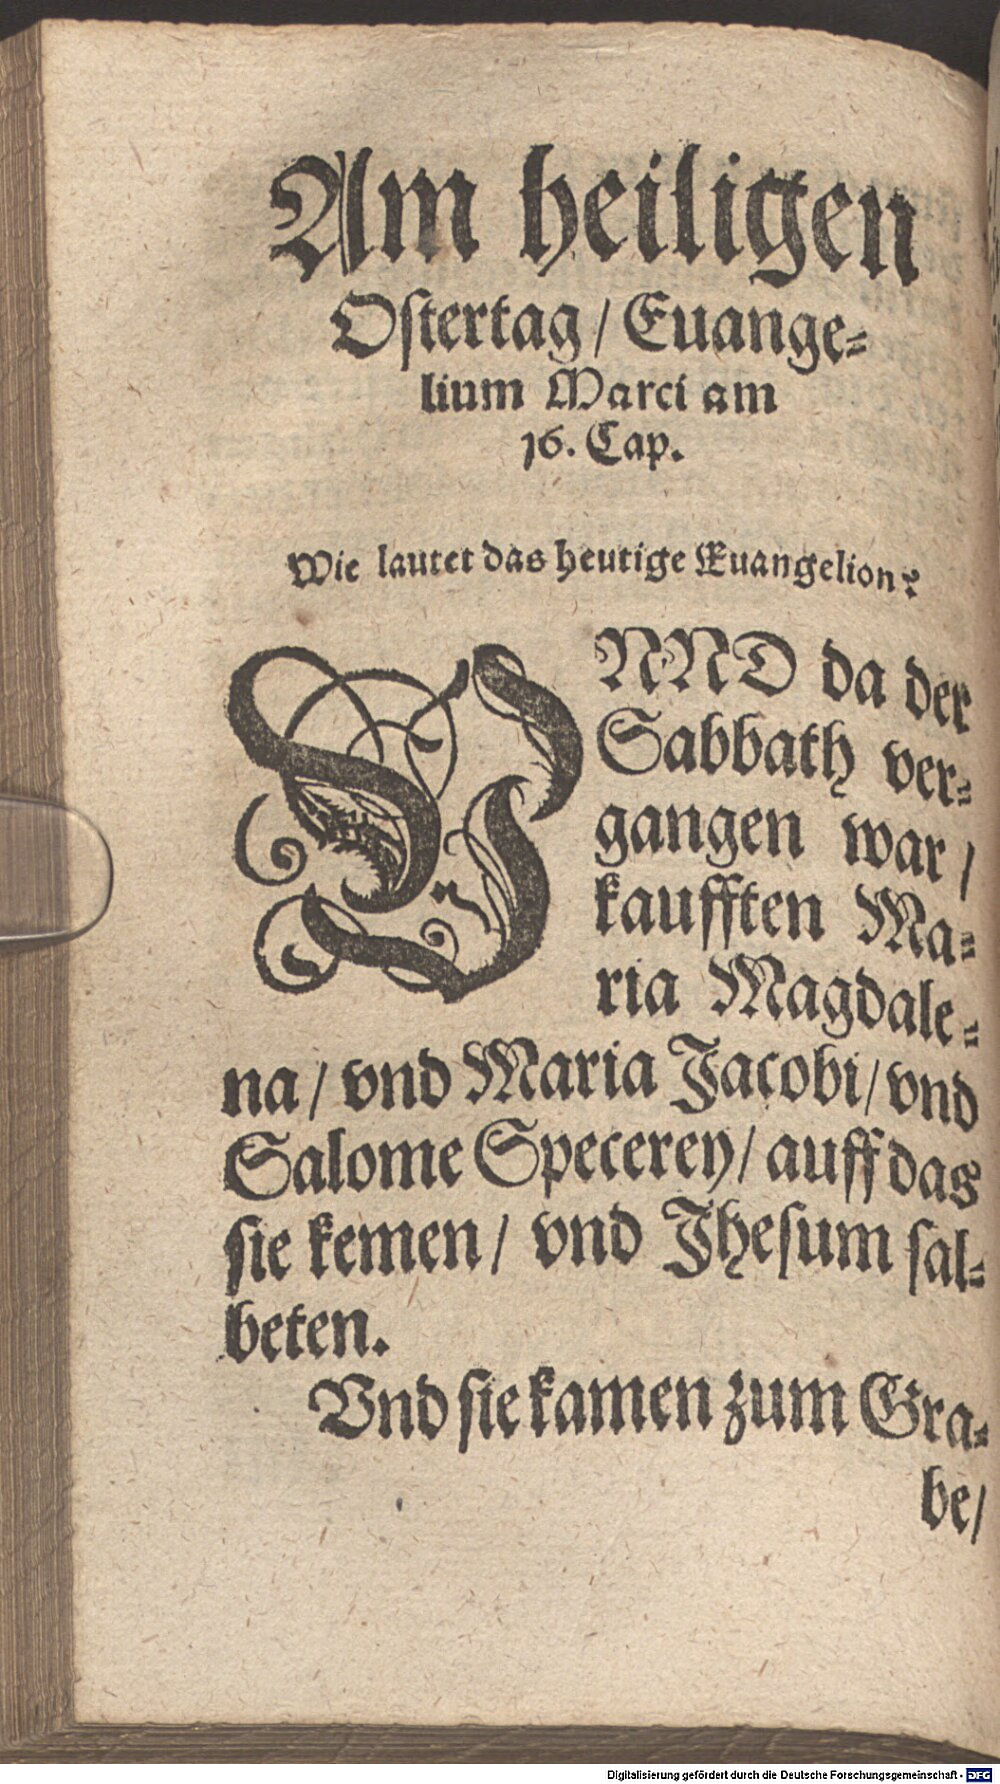 Am heiligen
Ostertag / Euange-
lium Marci am
16. Cap.
Wie lautet das heutige Euangelion?
VNND da der
Sabbath ver-
gangen war /
kaufften Ma-
ria Magdale-
na / vnd Maria Jacobi / vnd
Salome Specerey / auff das
sie kemen / vnd Jhesum sal-
beten.
Vnd sie kamen zum Gra-
be /
Digitalisierung gefördert durch die Deutsche Forschungsgemeinschaft - DFG